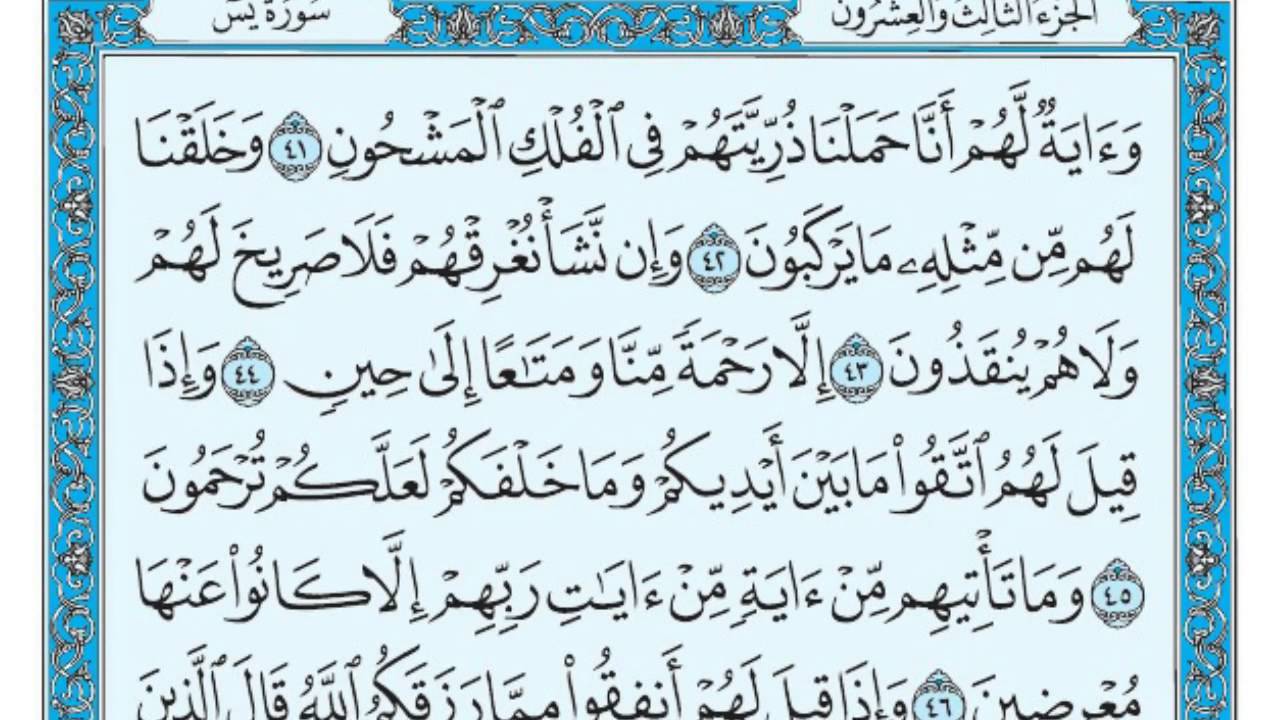 الجزء الثالث والعشرون
سورة يس
وَءَايَةٌ لَّهُمْ أَنَّا حَمَلْنَا ذُرِّيَّتَهُمْ فِي ٱلْفُلْكِ ٱلْمَشْحُونِ ٤١ وَخَلَقْنَا
لَهُم مِّن مِّثْلِهِۦ مَا يَرْكَبُونَ ٤٢ وَإِن نَّشَأْ نُغْرِقْهُمْ فَلَا صَرِيخَ لَهُمْ
وَلَا هُمْ يُنقَذُونَ ٤٣ إِلَّا رَحْمَةً مِّنَّا وَمَتَٰعًا إِلَىٰ حِينٍ ٤٤ وَإِذَا
قِيلَ لَهُمُ ٱتَّقُوا۟ مَا بَيْنَ أَيْدِيكُمْ وَمَا خَلْفَكُمْ لَعَلَّكُمْ تُرْحَمُونَ
٤٥ وَمَا تَأْتِيهِم مِّنْ ءَايَةٍ مِّنْ ءَايَٰتِ رَبِّهِمْ إِلَّا كَانُوا۟ عَنْهَا
مُعْرِضِينَ ٤٦ وَإِذَا قِيلَ لَهُمْ أَنفِقُوا۟ مِمَّا رَزَقَكُمُ ٱللَّهُ قَالَ ٱلَّذِينَ